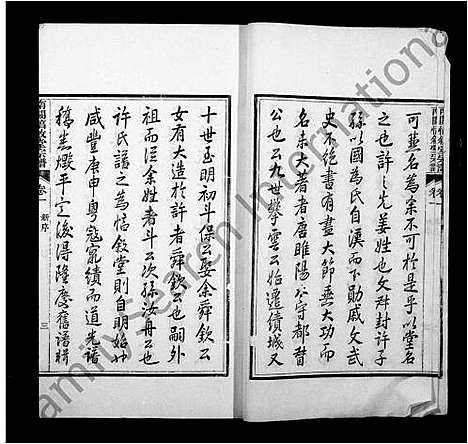 可無名為宗不可於是乎以堂名
之也許之先姜姓也文叔封許子
孫以國為氏自漢而下勛戚文武
史不絕書有盡大節垂大功而
名未大著者唐睢陽太守都督
公也云九世擎雲公始遷績城又
十世玉明初斗保公娶余舜欽公
女有大造於許者舜欽公也嗣外
祖以三余姓者斗公次孫汝舟公也
許氏譜之為惇敘堂則自明始
咸豐庚申粵寇竄績而道光譜
稿燬平定後得隆慶舊譜
惇敘堂宗譜
卷一
新序
三
FamilySearch International